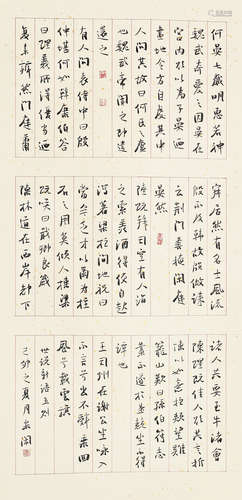 何七歲明惠若神
魏武奇愛之因晏在
宮內欲以為子晏廼
畫地令方自處其中
人問其故曰何氏之廬
也魏武帝聞之即遣
還之
有人問袁侍中曰殷
仲堪何如韓康伯答
曰理義所得優劣乃
復未辨然門庭蕭
寂居然有名士風流
殷不及韓故殷作誄
云荊門晝掩閑庭
晏然
陸玩拜司空有人詣
之索美酒得便自起
瀉著梁柱間地祝曰
當今乏才以爾為柱
石之用莫傾人棟梁
玩咲曰戢卿良箴
陳林道在西岸都下
諸人共要至牛渚會
陳理既佳人欲共言折
陳以如意拄頰望雞
籠山歎曰孫伯符志
業不遂於是竟坐不得
談也
王司州在謝公坐咏入
不言兮出不辭乘回
風兮載雲旗
世說新語五則
己卯之夏月